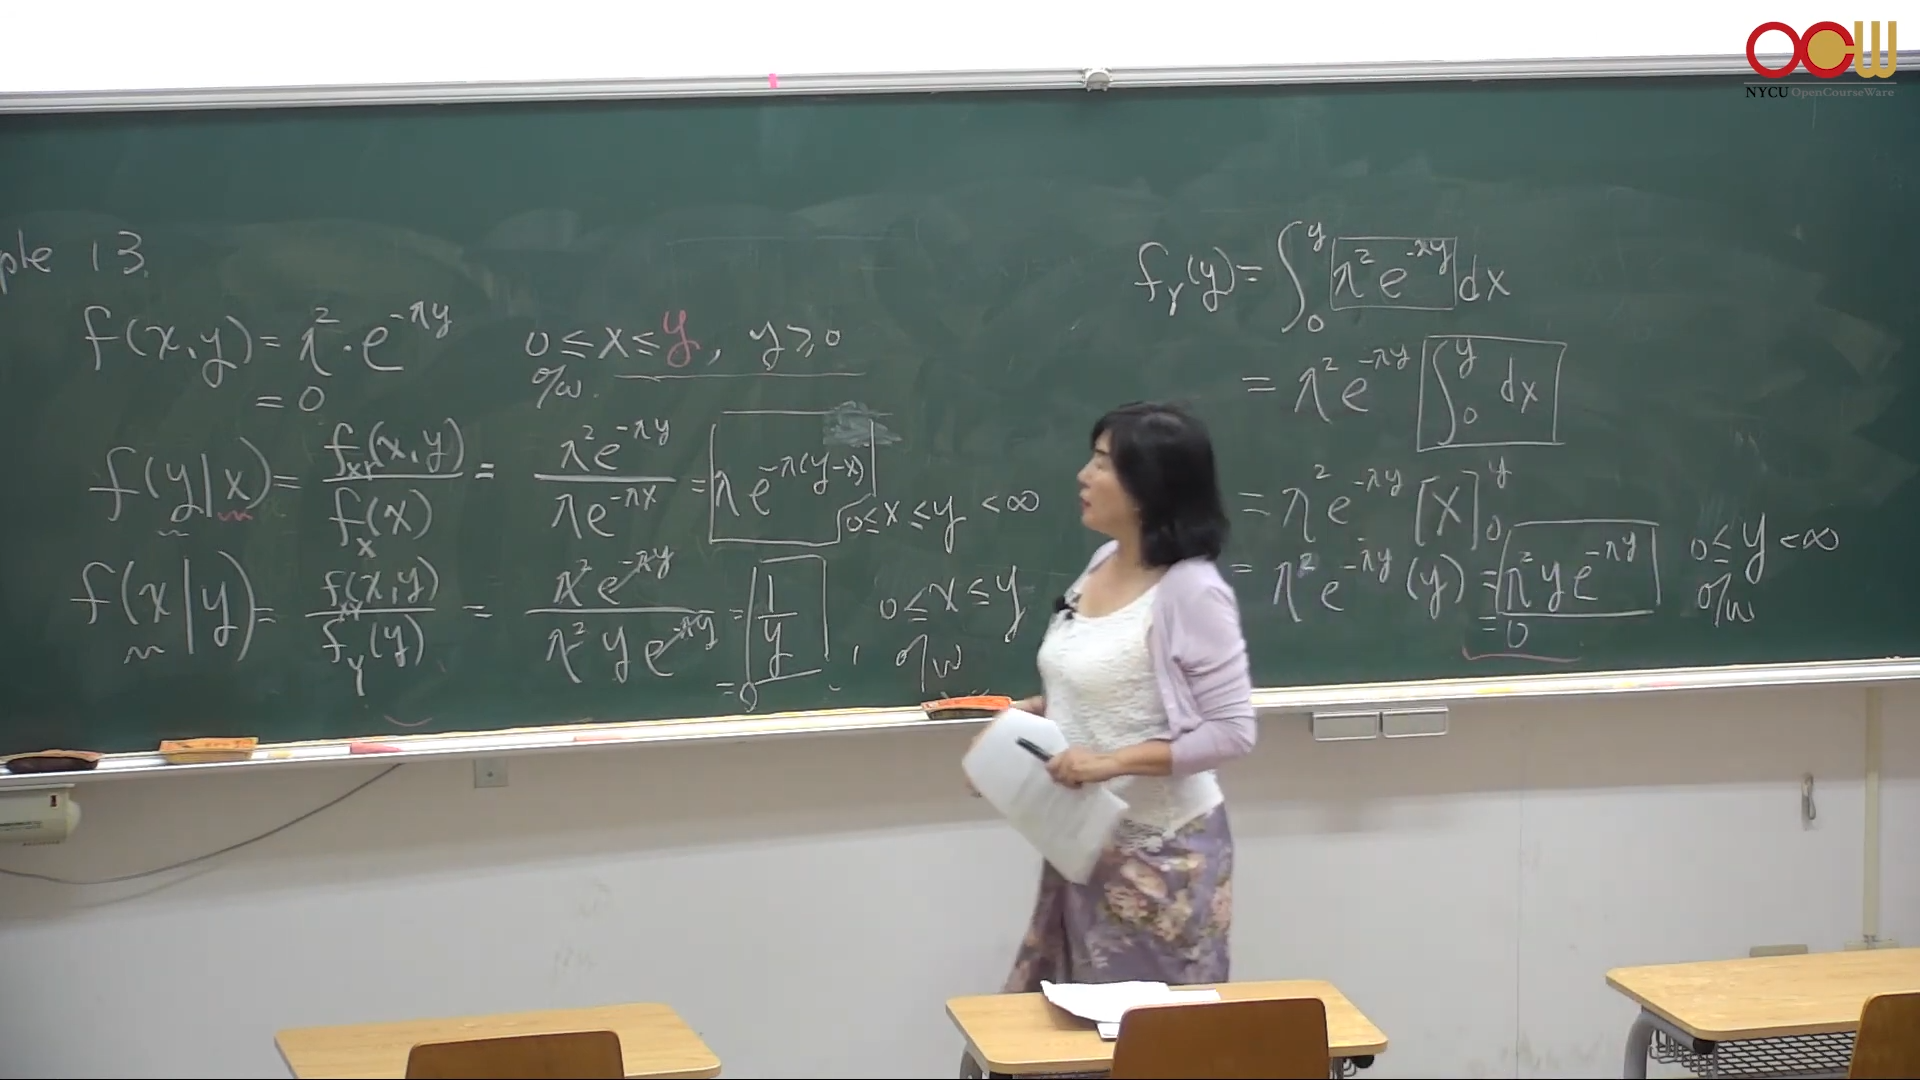 OCW
NYCU OpenCourseWare
ple 13.
f(x,y) = λ²·e^{-λy}   0 ≤ x ≤ y, y ≥ 0
= 0   o/w.
f(y|x) = f_{XY}(x,y) / f_X(x) = λ²e^{-λy} / λe^{-λx} = λe^{-λ(y-x)}   0 ≤ x ≤ y < ∞
f(x|y) = f_{XY}(x,y) / f_Y(y) = λ²e^{-λy} / λ²ye^{-λy} = 1/y,   0 ≤ x ≤ y
= 0   o/w
f_Y(y) = ∫_0^y λ²e^{-λy} dx
= λ²e^{-λy} ∫_0^y dx
= λ²e^{-λy} [x]_0^y
= λ²e^{-λy} (y) = λ²ye^{-λy}   0 ≤ y < ∞
= 0   o/w